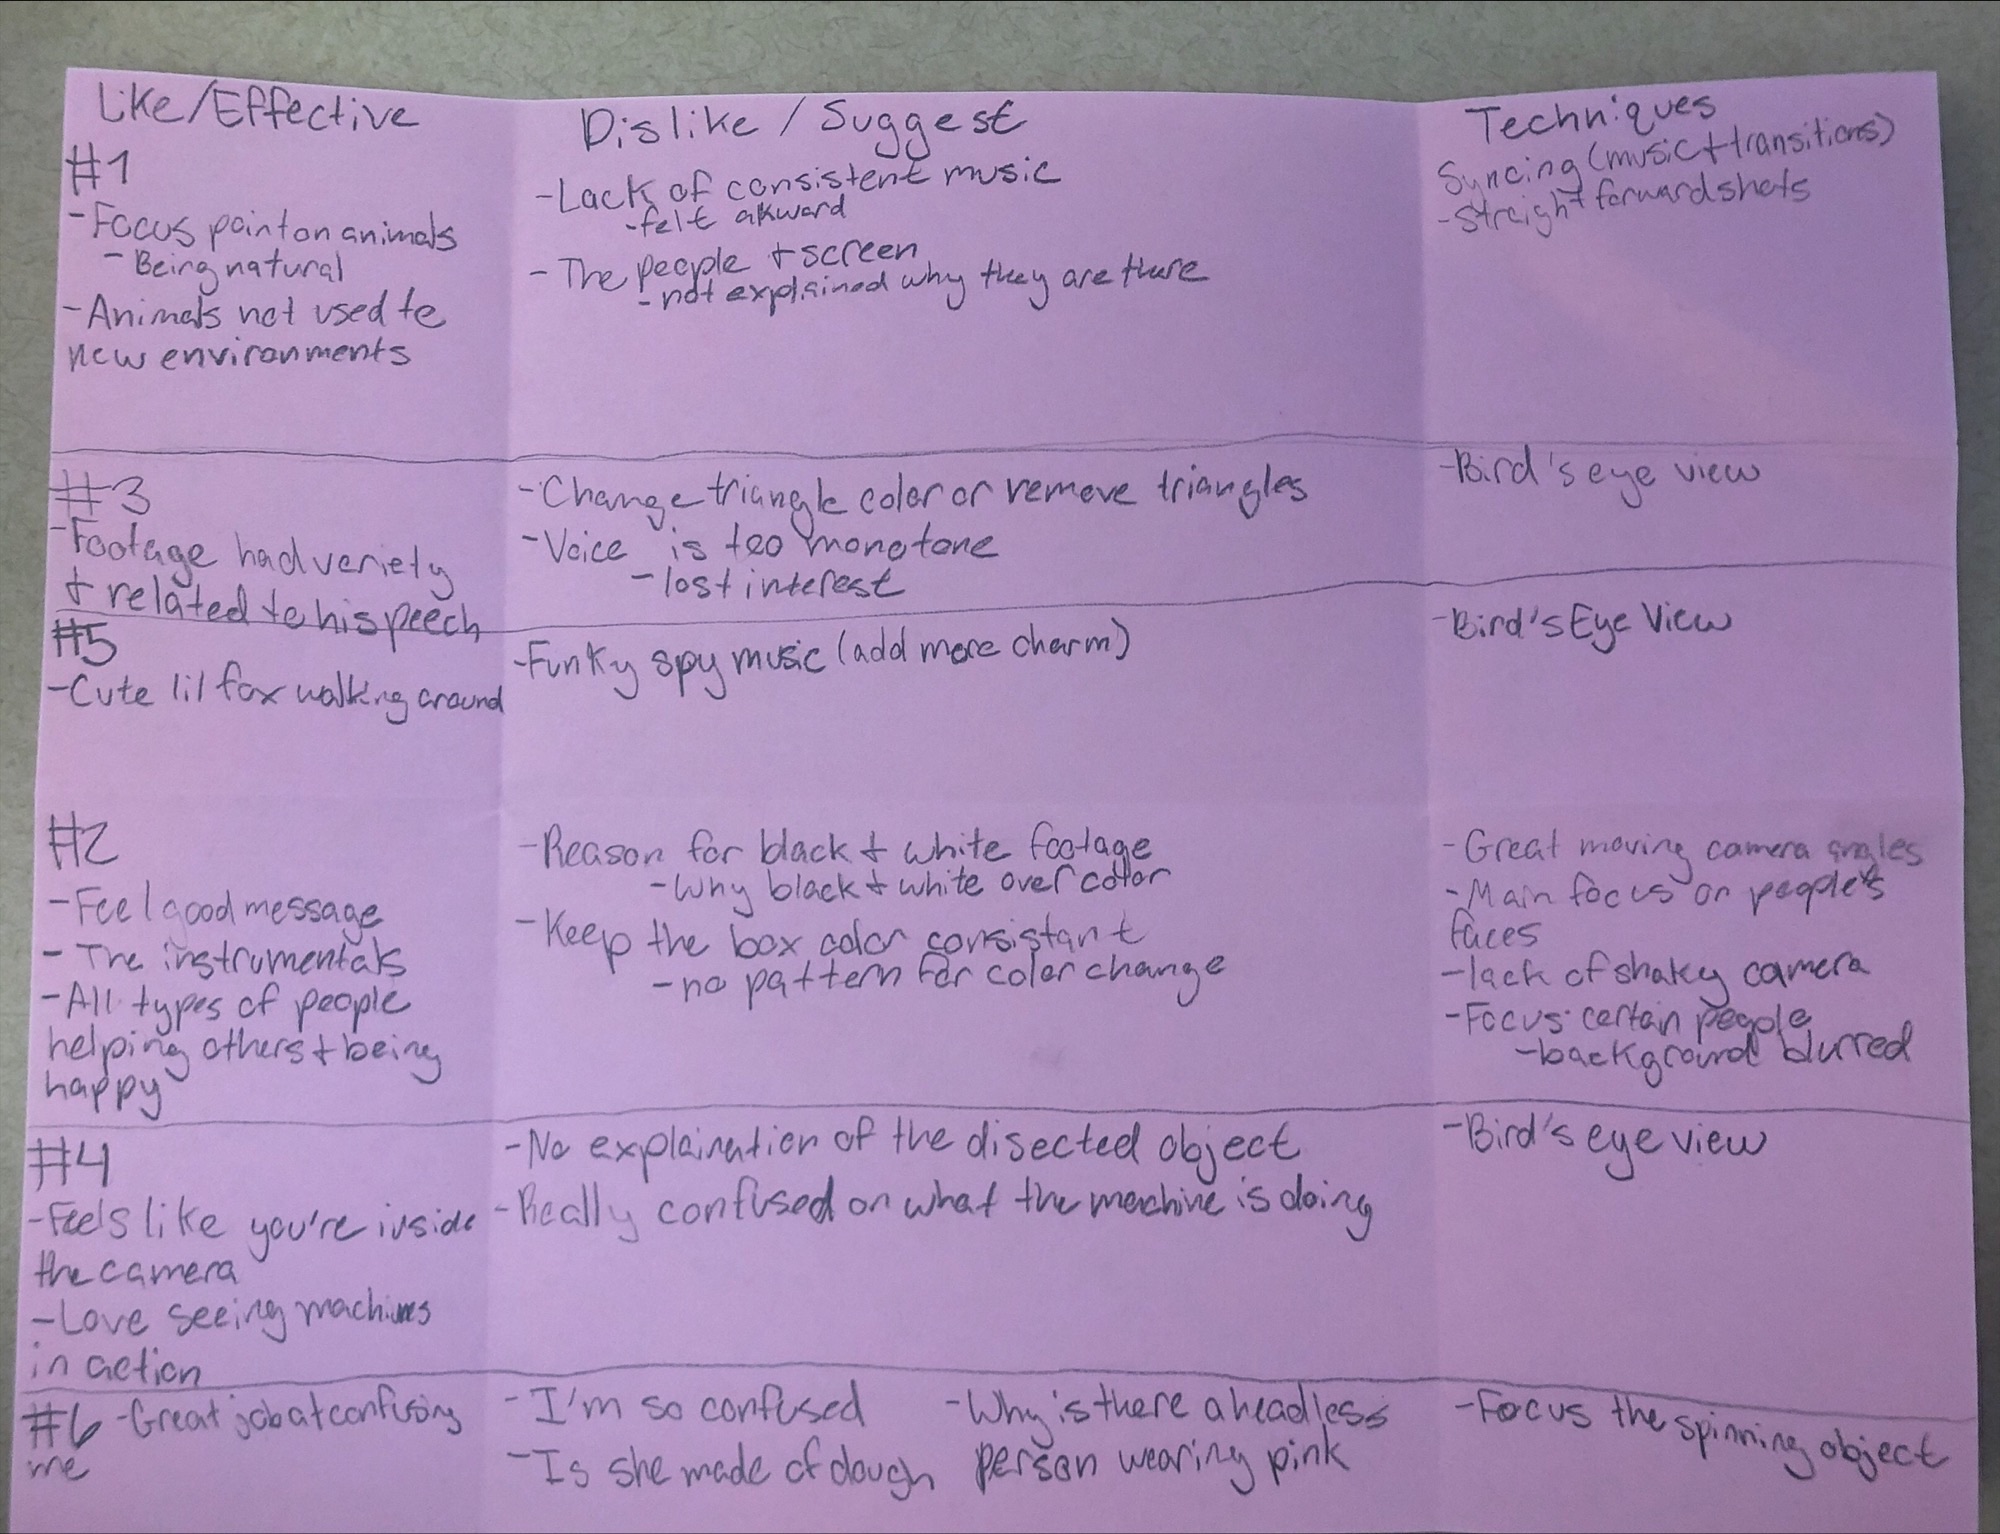 Like/Effective
Dislike / Suggest
Techniques
#1
- Focus point on animals
- Being natural
- Animals not used to
new environments
- Lack of consistent music
- felt akward
- The people + screen
- not explained why they are there
Syncing (music + transitions)
- straight forward shots
#3
- Footage had veriety
+ related to his peech
- Change triangle color or remove triangles
- Voice is too monotone
- lost interest
- Bird's eye view
#5
- Cute lil fox walking around
- Funky spy music (add more charm)
- Bird's Eye View
#2
- Feel good message
- The instrumentals
- All types of people
helping others + being
happy
- Reason for black + white footage
- Why black + white over color
- Keep the box color consistant
- no pattern for color change
- Great moving camera angles
- Main focus on people's
faces
- lack of shaky camera
- Focus certain people
- background blurred
#4
- Feels like you're inside
the camera
- Love seeing machines
in action
- No explaination of the disected object
- Really confused on what the machine is doing
- Bird's eye view
#6 - Great job at confusing
me
- I'm so confused
- Is she made of dough
- Why is there a headless
person wearing pink
- Focus the spinning object